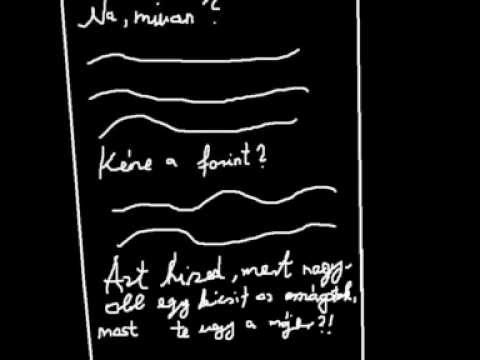 Na, mivan?
Kéne a forint?
Azt hiszed, mert nagy-
obb egy kicsit az
most te vagy a ?!